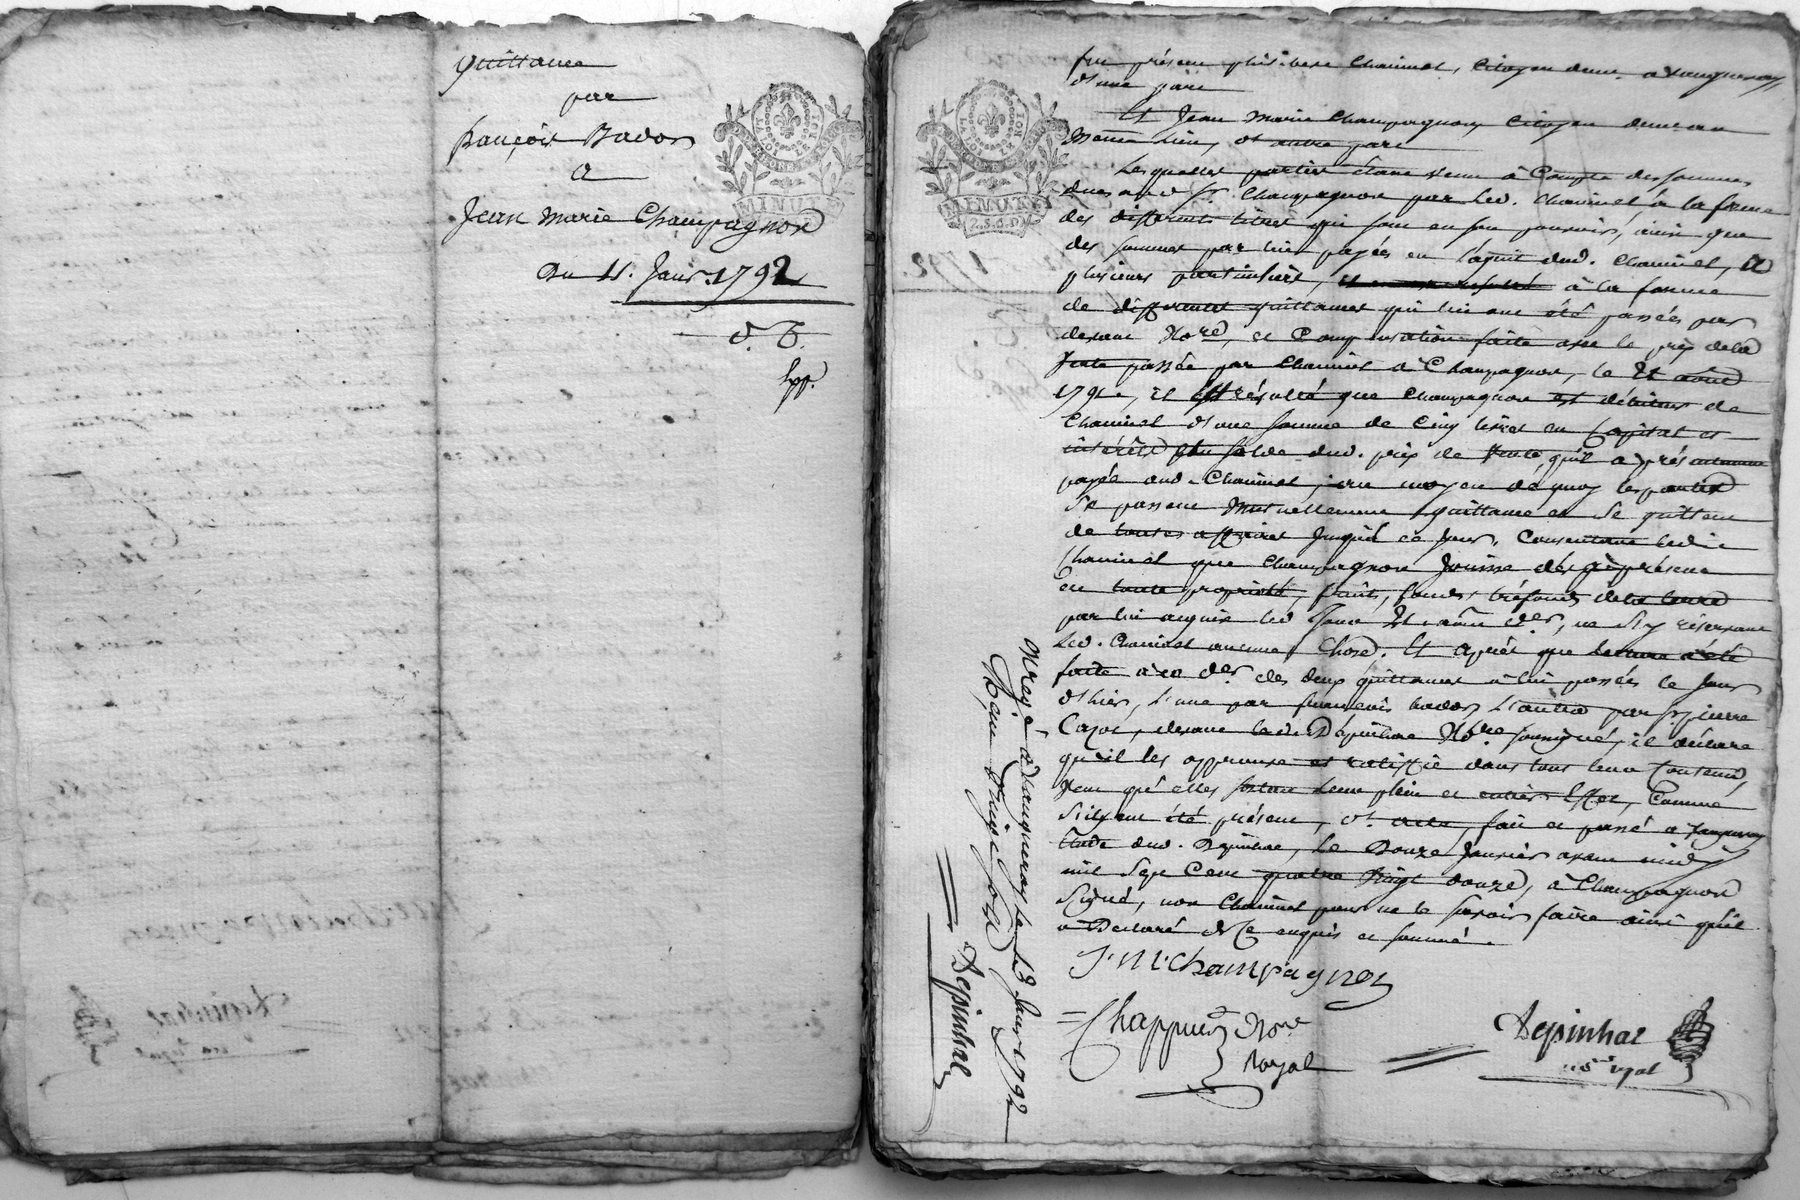 Quittance
par
françois Badon
a
Jean Marie Champagnon
Du 11. Janv. 1792
LA LOI ET LE ROI
MINUTE
fut présent philibert Chaminet, Citoyen demt. a Vaugneray,
d'une part
Et Jean Marie Champagnon Citoyen demeurant
même lieu, d'autre part
Lesquelles parties étant venu à Compte des sommes
dues aud. Sr. Champagnon par led. Chaminet à la forme
des différents titres qui sont en son pouvoir, ainsi que
des sommes par lui payées en l'acquit dud. Chaminet, a
plusieurs particuliers, à la forme
de différentes quittances qui lui ont été passées par
devant Nore, et Compensation faite avec le prix de la
Vente passée par Chaminet à Champagnon, le 21 août
1791, il est résulté que Champagnon est débiteur de
Chaminet d'une somme de Cinq livres en Capital et
intérêts pour solde dud. prix de Vente, qu'il a présentement
payée aud. Chaminet, au moyen de quoy les parties
se passent Mutuellement quittance et se quittent
de toutes affaires Jusqu'à ce Jour, Consentant ledit
Chaminet que Champagnon Jouisse dès à présent
en toute propriété, fruits, fonds, tréfonds de la terre
par lui acquise led. Jour 21 août der, ne s'y réservant
Led. Chaminet aucune Chose. Et après que Lecture a été
faite à ce der. des deux quittances à lui passées le Jour
d'hier, l'une par francois badon l'autre par Sr. pierre
Cazot, devant ledit Dépinhac Nore soussigné, il déclare
qu'il les approuve et ratiffie dans tout leur Contenu,
Veut qu'elles sortent leur plein et entier Effet, Comme
s'il y eut été présent, dt. acte, fait et passé a Vaugneray
Etude dud. Dépinhac, Le Douze Janvier avant midy
mil Sept Cent quatre Vingt douze, a Champagnon
Signé, non Chaminet pour ne le savoir faire ainsi qu'il
a Déclaré de Ce enquis et sommé.
J. M. Champagnon
Chappuis Nore
Royal
Depinhac
nore royal
à Vaugneray le 13 Janv. 1792
Reçu quinze sols
Depinhac